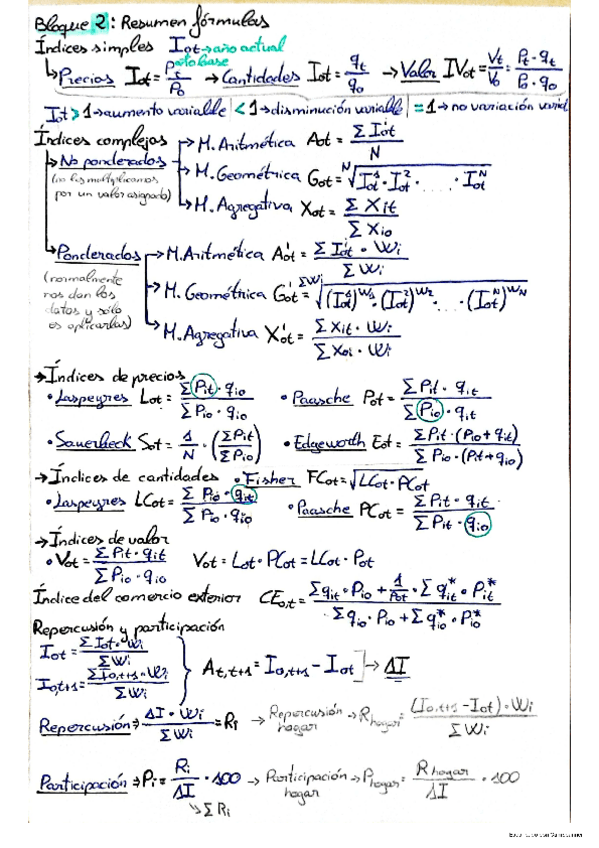 Bloque 2: Resumen fórmulas
Índices simples Iot → año actual
año base
↳ Precios Iot = Pt/Po → Cantidades Iot = qt/qo → Valor IVot = Vt/Vo = Pt·qt / Po·qo
Iot > 1 → aumento variable | < 1 → disminución variable | = 1 → no variación variab
Índices complejos → M. Aritmética Aot = Σ Iot / N
↳ No ponderados → M. Geométrica Got = N√(I¹ot · I²ot · ..... · Iᴺot)
(no los multiplicamos por un valor asignado)
→ M. Agregativa Xot = Σ Xit / Σ Xio
↳ Ponderados → M. Aritmética A'ot = Σ Iot · Wi / Σ Wi
(normalmente nos dan los datos y sólo es aplicarlas)
→ M. Geométrica G'ot = ΣWi√((I¹ot)^W1 · (I²ot)^W2 · ... · (Iᴺot)^WN)
→ M. Agregativa X'ot = Σ Xit · Wi / Σ Xoi · Wi
→ Índices de precios
• Laspeyres Lot = Σ Pit · qio / Σ Pio · qio • Paasche Pot = Σ Pit · qit / Σ Pio · qit
• Sauerbeck Sot = 1/N · (ΣPit / ΣPio) • Edgeworth Eot = Σ Pit · (Pio + qit) / Σ Pio · (Pit + qio)
→ Índices de cantidades • Fisher FCot = √(LCot · PCot)
• Laspeyres LCot = Σ Pio · qit / Σ Pio · qio • Paasche PCot = Σ Pit · qit / Σ Pit · qio
→ Índices de valor
• Vot = Σ Pit · qit / Σ Pio · qio Vot = Lot · PCot = LCot · Pot
Índice del comercio exterior CEo,t = (Σqit · Pio + 1/Pot · Σ q*it · P*it) / (Σqio · Pio + Σ q*io · P*io)
Repercusión y participación
Iot = Σ Iot · Wi / Σ Wi
Io,t+1 = Σ Io,t+1 · Wi / Σ Wi
At,t+1 = Io,t+1 − Iot → ΔI
Repercusión ⇒ ΔI · Wi / Σ Wi = Ri → Repercusión hogar → Rhogar = (Io,t+1 − Iot) · Wi / Σ Wi
Participación ⇒ Pi = Ri / ΔI · 100 → Participación hogar → Phogar = Rhogar / ΔI · 100
↳ Σ Ri